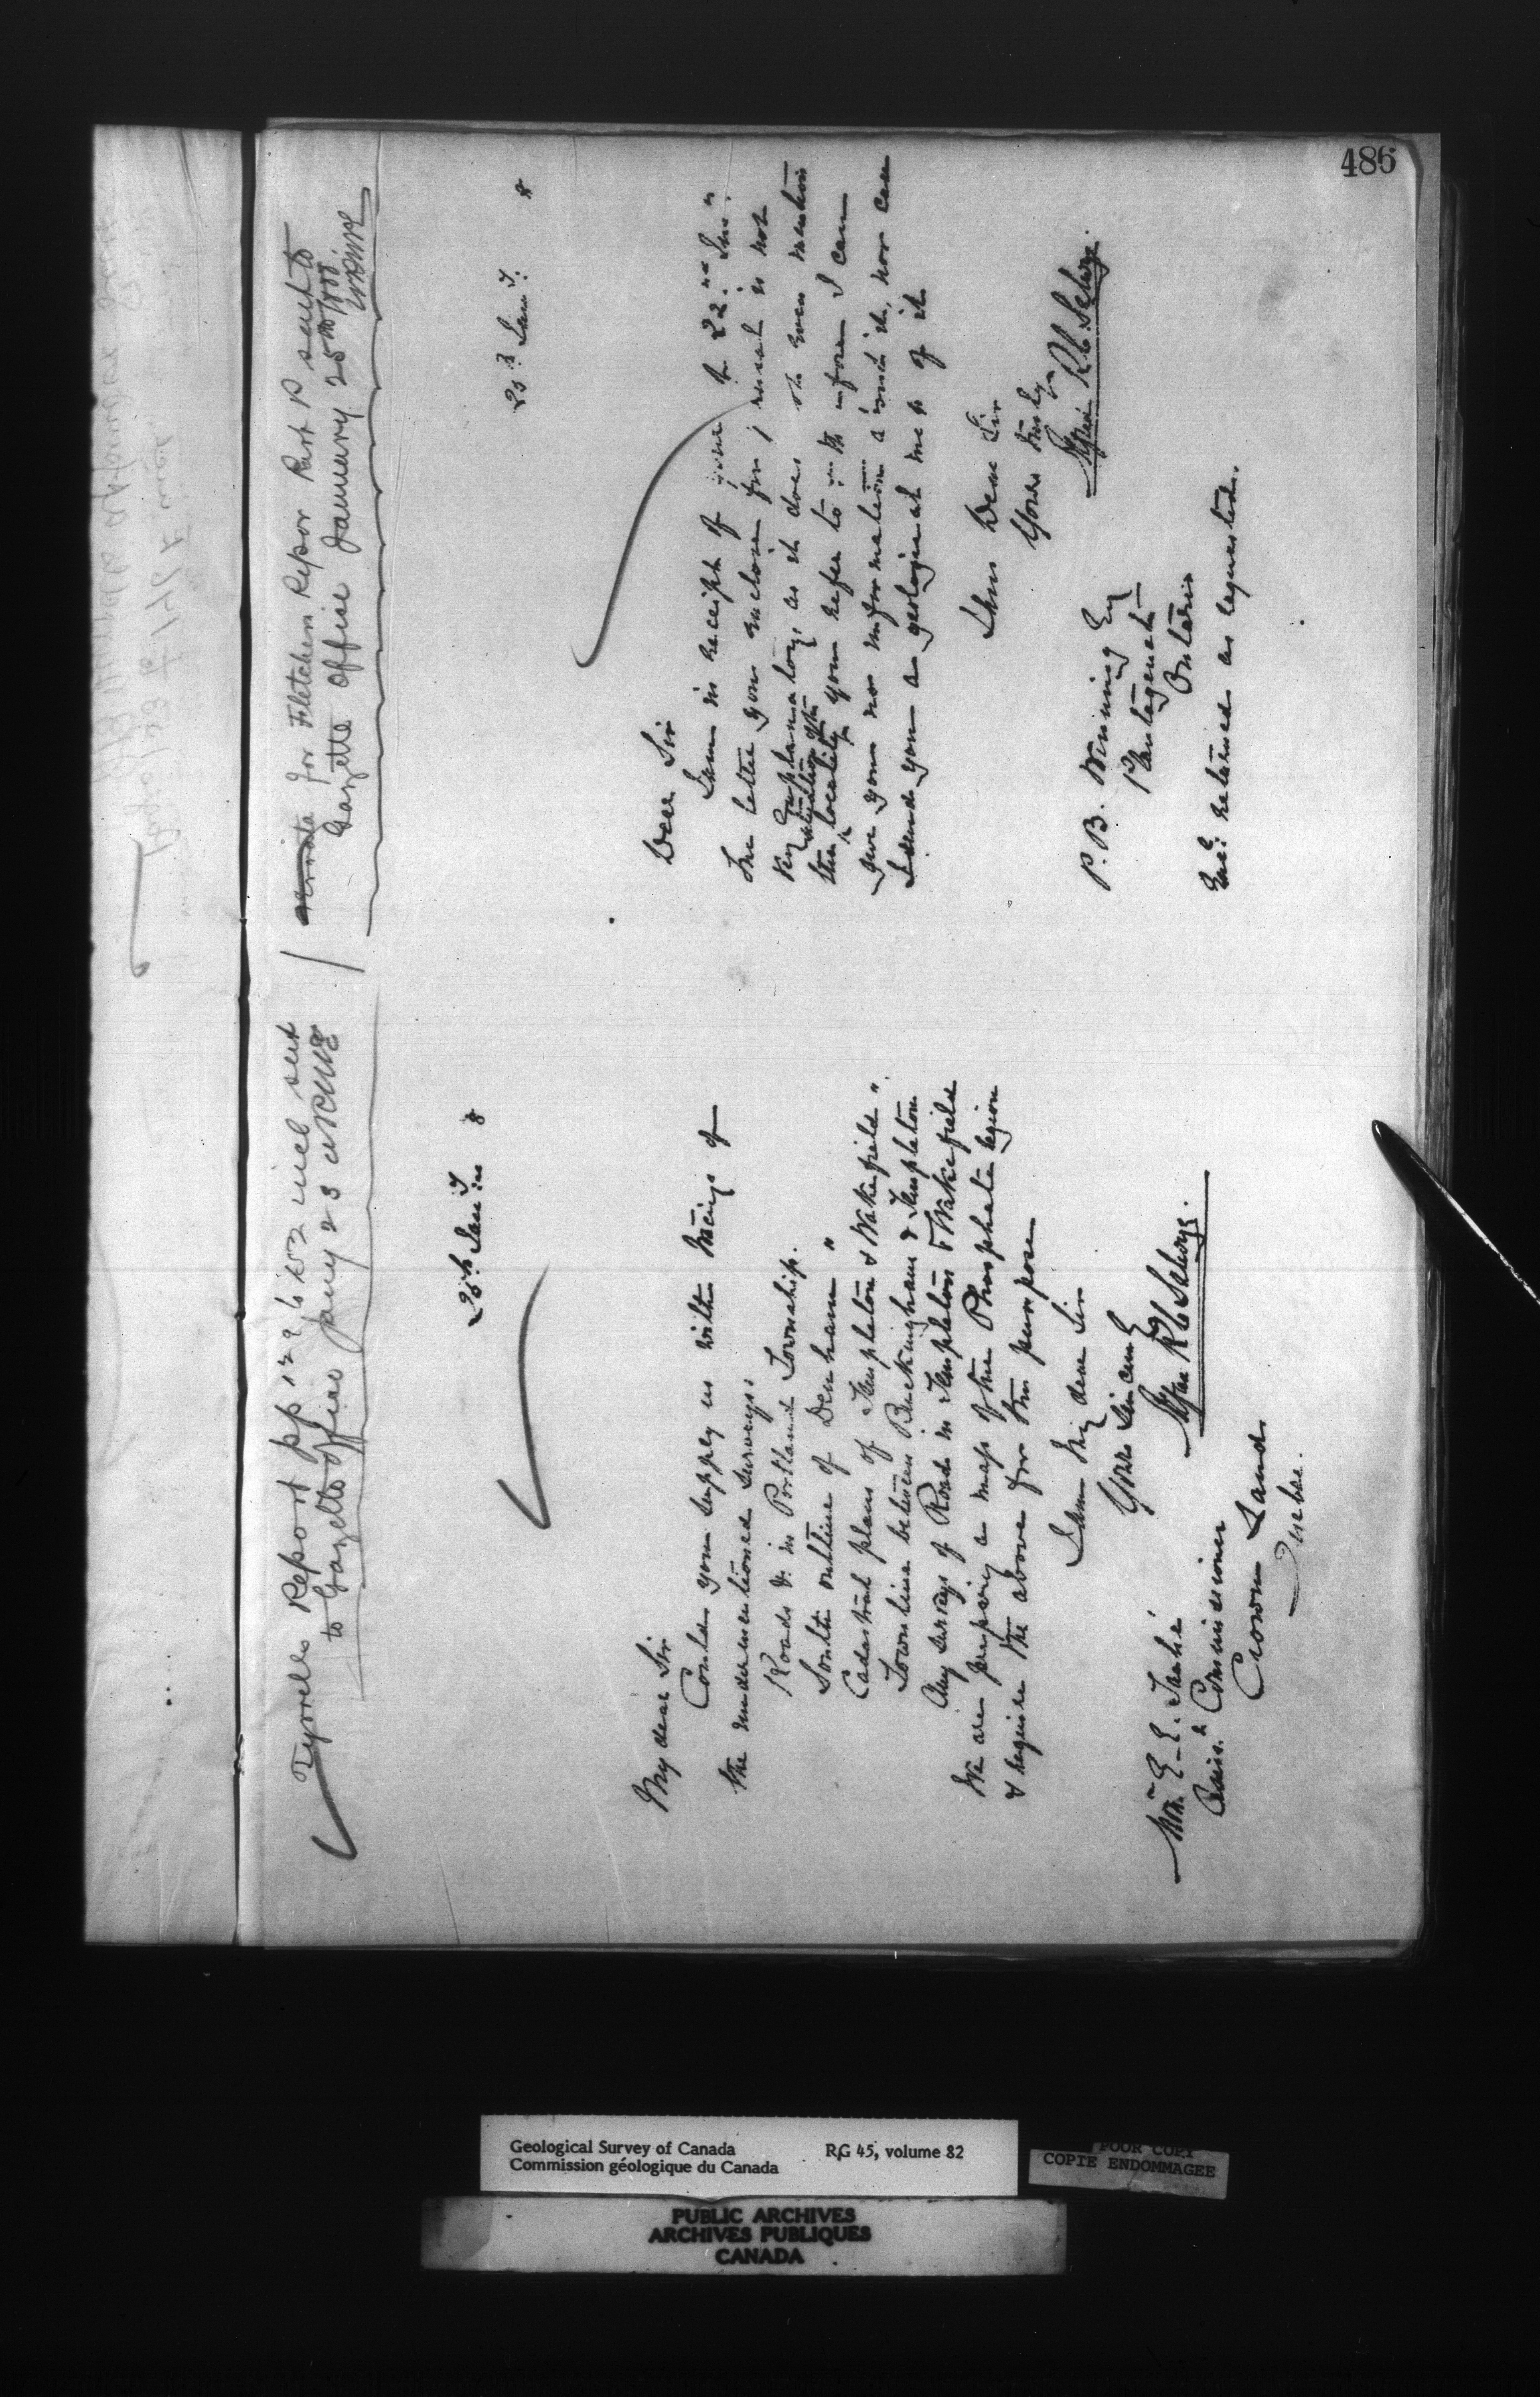 486
Tyrrells Report pp 129 to 152 incl sent
to Gazette Office Jany 23
25th Jany 8
My dear Sir
Could you supply us with tracings of
the undermentioned surveys:
Roads &. in Portland Township.
South outline of Denham "
Cadastral plans of Templeton & Wakefield "
Town line between Buckingham & Templeton
Any surveys of Roads in Templeton & Wakefield
We are preparing a map of the Phosphate region
& require the above for the purpose
I am My dear Sir
Yours Sincerely
Alfred R C Selwyn.
E. E. Taché
Assist. Commissioner
Crown Lands
Quebec.
errata for Fletchers Repor Part P sent to
Gazette Office January 25th
25th Jany. 8
Dear Sir
I am in receipt of your of 22nd Inst
The letter you enclose for perusal is not
very explanatory, as it does not even mention
the situation of the locality you refer to
give you nor information about it, nor can
I send you a geological map of it
I am Dear Sir
Yours truly
Alfred R C Selwyn.
P. B. Winning Esq
Plantagenet
Ontario
Encl: returned as requested.
Geological Survey of Canada RG 45, volume 82
Commission géologique du Canada
POOR COPY
COPIE ENDOMMAGEE
PUBLIC ARCHIVES
ARCHIVES PUBLIQUES
CANADA